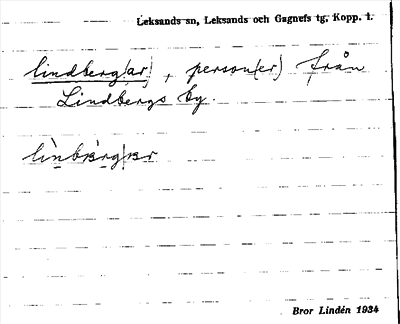 Leksands sn, Leksands och Gagnefs tg, Kopp. l.
lindberg(ar), person(er) från
Lindbergs by.
Bror Lindén 1934